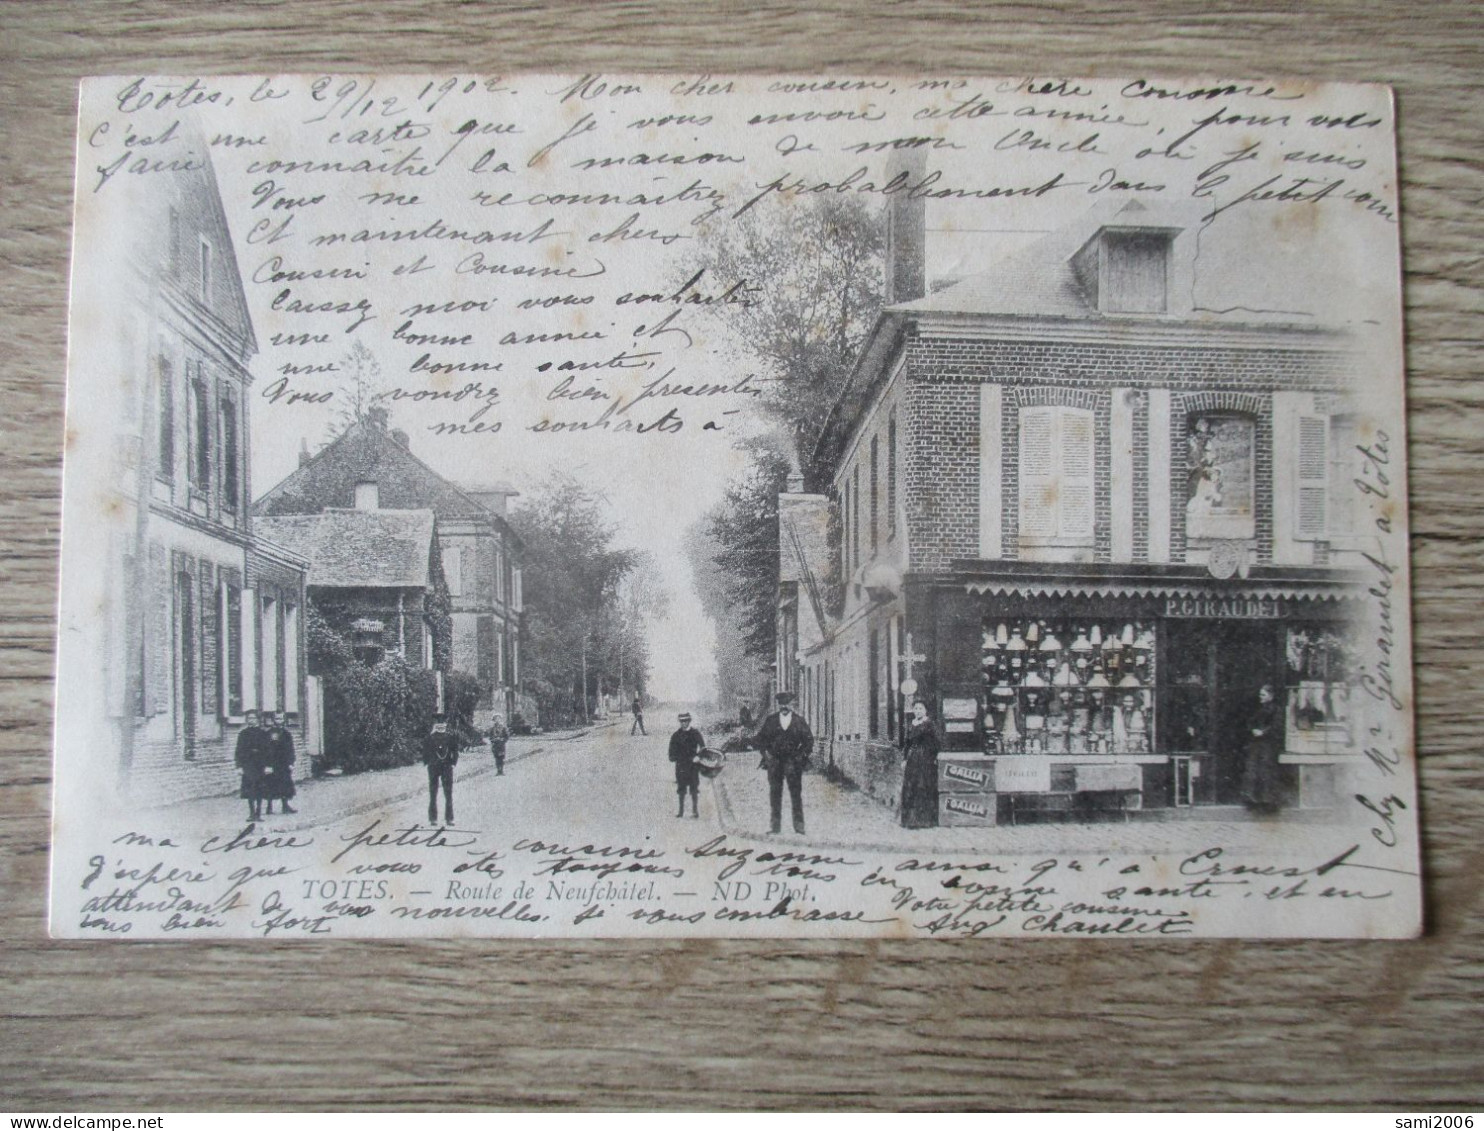 Tôtes, le 29/12 1902. Mon cher cousin, ma chère cousine
C'est une carte que je vous envoie cette année, pour vous
faire connaître la maison de mon Oncle où je suis
Vous me reconnaîtrez probablement dans le petit coin
Et maintenant chers
Cousin et Cousine
laissez moi vous souhaiter
une bonne année et
une bonne santé,
Vous voudrez bien présenter
mes souhaits à
ma chère petite cousine Suzanne ainsi qu'à Ernest
J'espère que vous êtes toujours tous en bonne santé, et en
attendant de vos nouvelles. je vous embrasse
tous bien fort
Votre petite cousine
Aug Chaulet
chez Mr Giraudet à Tôtes
P. GIRAUDET
TOTES. — Route de Neufchâtel. — ND Phot.
sami2006